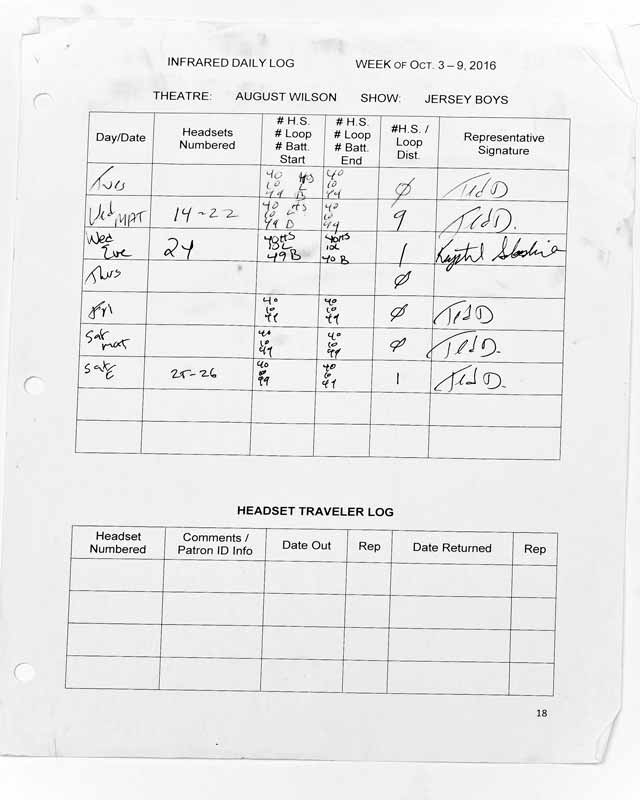 INFRARED DAILY LOG WEEK OF OCT. 3 – 9, 2016
THEATRE: AUGUST WILSON SHOW: JERSEY BOYS
Day/Date
Headsets
Numbered
# H.S.
# Loop
# Batt.
Start
# H.S.
# Loop
# Batt.
End
#H.S. /
Loop
Dist.
Representative
Signature
Tues
40 HS
10 L
49 B
40
10
49
Ø
Ted D
Wed MAT
14-22
40 HS
10 L
49 B
40
10
49
9
Ted D.
Wed
Eve
24
40HS
10L
49B
40HS
10L
40B
1
Krystal
Thurs
Ø
Fri
40
10
49
40
10
49
Ø
Ted D
Sat
mat
40
10
49
40
10
49
Ø
Ted D.
Sat
E
25-26
40
10
49
40
10
49
1
Ted D.
HEADSET TRAVELER LOG
Headset
Numbered
Comments /
Patron ID Info
Date Out
Rep
Date Returned
Rep
18